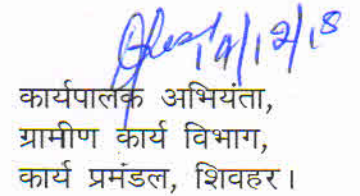 19/12/18
कार्यपालक अभियंता,
ग्रामीण कार्य विभाग,
कार्य प्रमंडल, शिवहर।